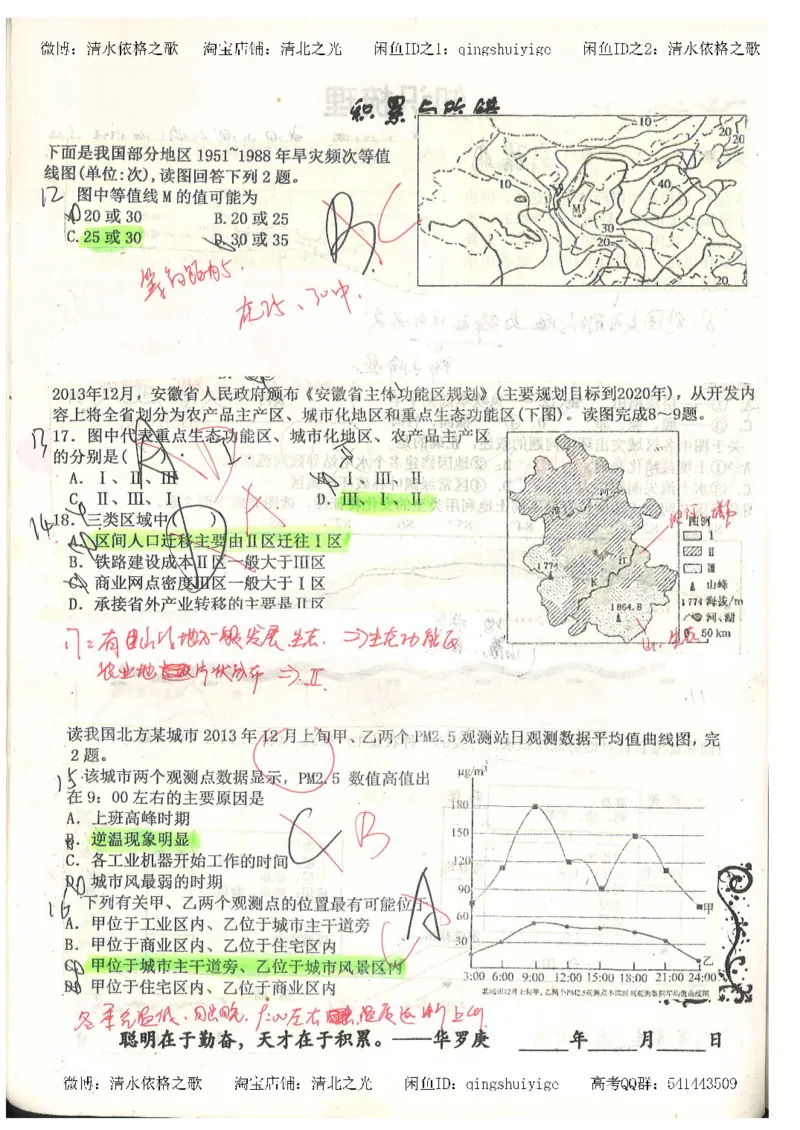 微博：清水依格之歌 淘宝店铺：清北之光 闲鱼ID之1：qingshuiyige 闲鱼ID之2：清水依格之歌
积累与改错
下面是我国部分地区1951~1988年旱灾频次等值
线图(单位:次),读图回答下列2题。
12 图中等值线M的值可能为
A. 20或30 B. 20或25
C. 25或30 D. 30或35
B C
10 20 20 10 40 M 30 20 20
在25、30中.
2013年12月，安徽省人民政府颁布《安徽省主体功能区规划》(主要规划目标到2020年)，从开发内
容上将全省划分为农产品主产区、城市化地区和重点生态功能区(下图)。读图完成8～9题。
13 17. 图中代表重点生态功能区、城市化地区、农产品主产区
的分别是( )
A. Ⅰ、Ⅱ、Ⅲ B. Ⅰ、Ⅲ、Ⅱ
C. Ⅱ、Ⅲ、Ⅰ D. Ⅲ、Ⅰ、Ⅱ
14 18. 三类区域中( )
A. 区间人口迁移主要由Ⅱ区迁往Ⅰ区
B. 铁路建设成本Ⅱ区一般大于Ⅲ区
C. 商业网点密度Ⅲ区一般大于Ⅰ区
D. 承接省外产业转移的主要是Ⅱ区
图例
Ⅰ
Ⅱ
Ⅲ
山峰
1774 海拔/m
河、湖
0 50 km
河 江 1774 1864.8
17：有山的地方一般发展生态. ⇒生态功能区
农业地 片状分布 ⇒Ⅱ.
读我国北方某城市2013年12月上旬甲、乙两个PM2.5观测站日观测数据平均值曲线图，完
2题。
15 该城市两个观测点数据显示，PM2.5 数值高值出
在9：00左右的主要原因是
A. 上班高峰时期
B. 逆温现象明显
C. 各工业机器开始工作的时间
D. 城市风最弱的时期
C B
16 下列有关甲、乙两个观测点的位置最有可能位于
A. 甲位于工业区内、乙位于城市主干道旁
B. 甲位于商业区内、乙位于住宅区内
C. 甲位于城市主干道旁、乙位于城市风景区内
D. 甲位于住宅区内、乙位于商业区内
A C
μg/m³
180
150
120
90
60
30
甲
乙
3:00 6:00 9:00 12:00 15:00 18:00 21:00 24:00
某城市12月上旬甲、乙两个PM2.5观测点不同时刻观测数据平均值曲线图
聪明在于勤奋，天才在于积累。——华罗庚 ____年____月____日
微博：清水依格之歌 淘宝店铺：清北之光 闲鱼ID：qingshuiyige 高考QQ群：541443509